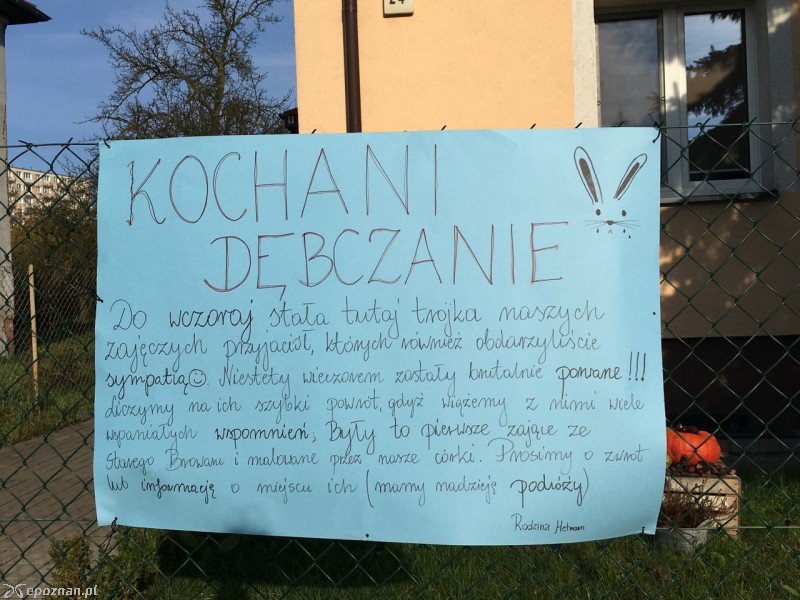 24
KOCHANI
DĘBCZANIE
Do wczoraj stała tutaj trójka naszych
zajęczych przyjaciół, których również obdarzyliście
sympatią☺. Niestety wieczorem zostały brutalnie porwane!!!
Liczymy na ich szybki powrót, gdyż wiążemy z nimi wiele
wspaniałych wspomnień; Były to pierwsze zające ze
Starego Browaru i malowane przez nasze córki. Prosimy o zwrot
lub informację o miejscu ich (mamy nadzieję podróży)
Rodzina Hetman
epoznan.pl